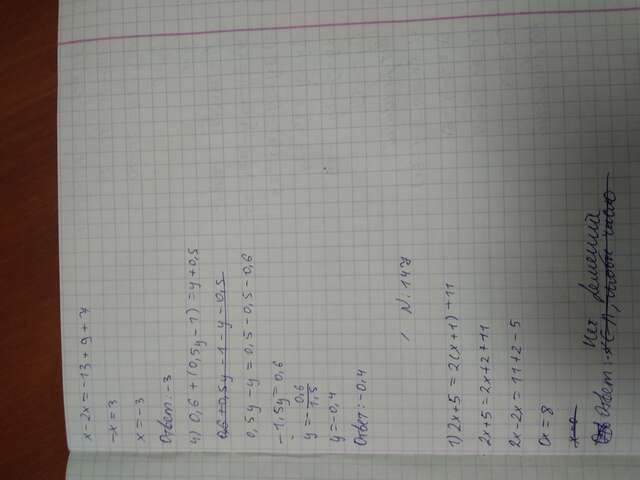 x-2x=-13+9+7
-x=3
x=-3
Ответ: -3
4) 0,6+(0,5y-1)=y+0,5
0,6+0,5y-1-y-0,5
0,5y-y=0,5-0,5-0,6
-1,5y=0,6
y=-0,6/1,5
y=-0,4
Ответ: -0,4
N. 147
1) 2x+5=2(x+1)+11
2x+5=2x+2+11
2x-2x=11+2-5
0x=8
x=0
Нет решений
Ответ: x∈ любое число